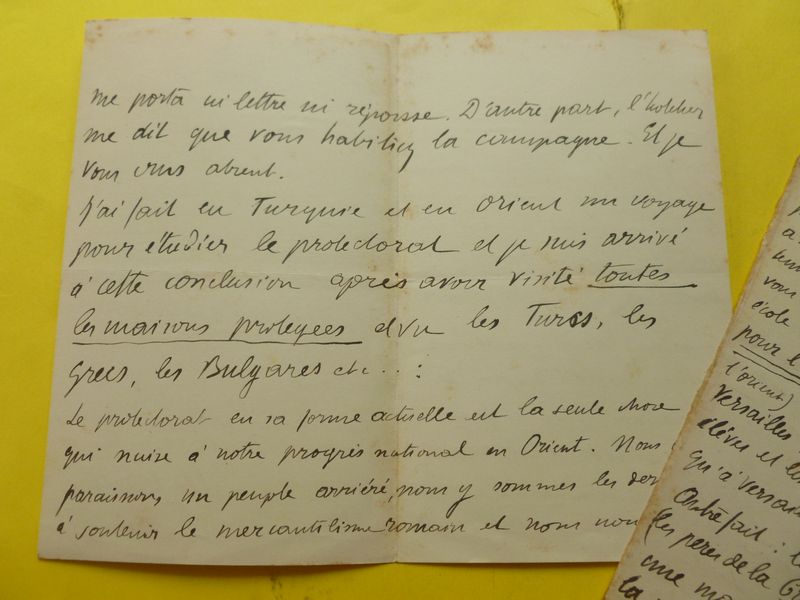 me porta ni lettre ni réponse. D'autre part, l'hotelier
me dit que vous habitiez la campagne. Et je
vous crus absent.
J'ai fait en Turquie et en Orient un voyage
pour étudier le protectorat et je suis arrivé
à cette conclusion après avoir visité toutes
les maisons protégées et vu les Turcs, les
Grecs, les Bulgares etc...:
Le protectorat en sa forme actuelle est la seule chose
qui nuise à notre progrès national en Orient. Nous
paraissons un peuple arriéré, nous y sommes les der
à soutenir le mercantilisme romain et nous nou
vous
école
pour l'
l'orient)
Versailles
élèves et les
qu'à Versai
Autre fait : l
les peres de la
une ma
la